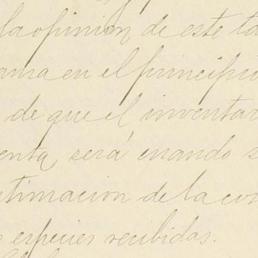 la opinion de este ta
ama en el principio
de que el inventar
enta, será cuando s
stimacion de la co
s especies recibidas.